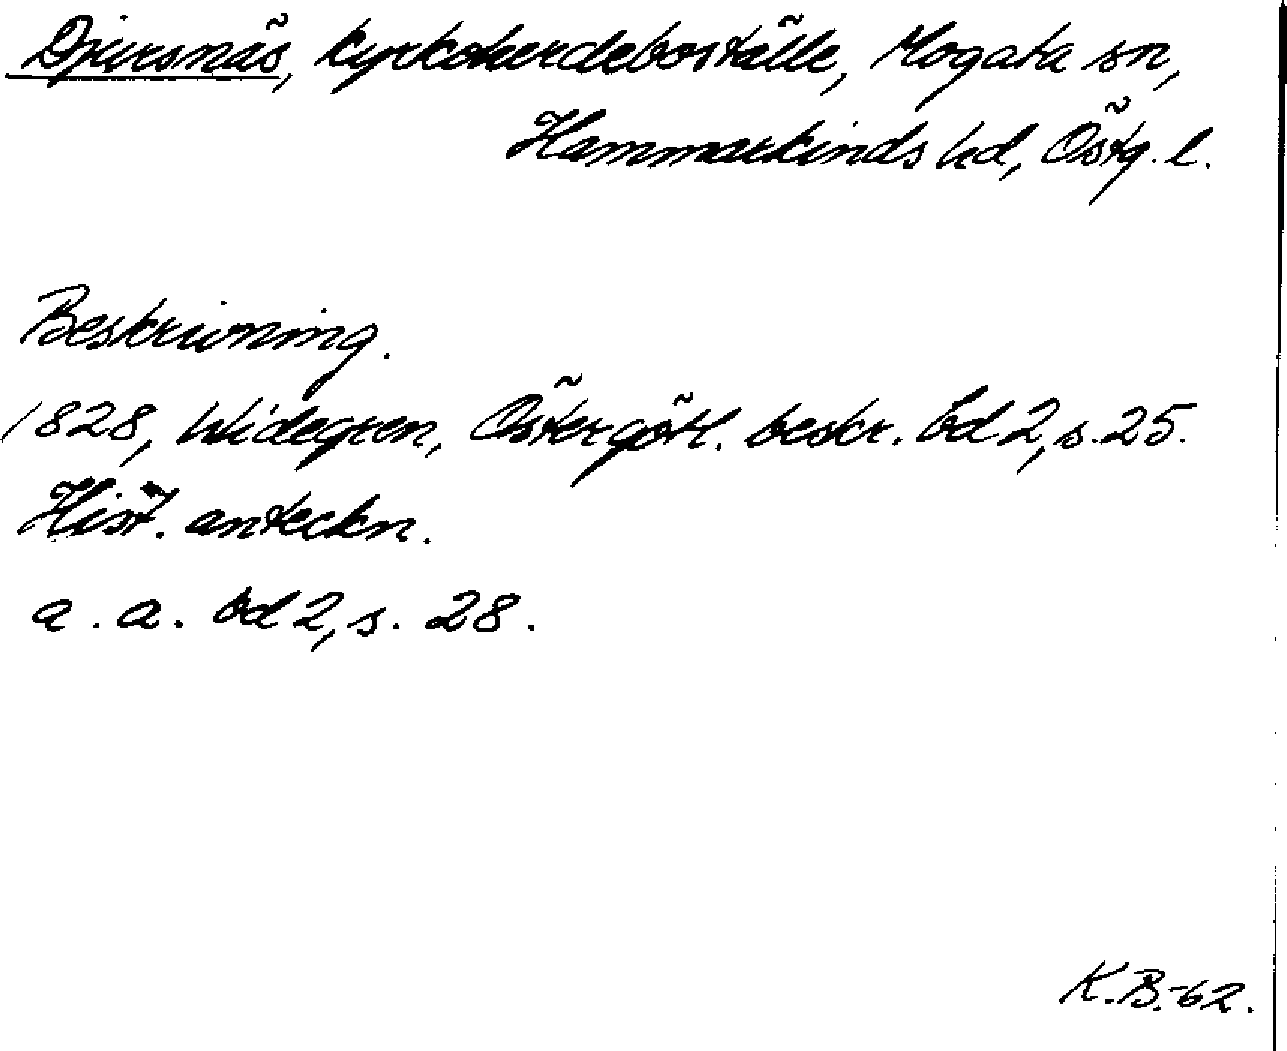 Djursnäs, kyrkoherdeboställe, Mogata sn,
Hammarkinds hd, Östg. l.
Beskrivning.
1828, Widegren, Östergötl. beskr. bd 2, s. 25.
Hist. anteckn.
a. a. bd 2, s. 28.
K.B.-62.